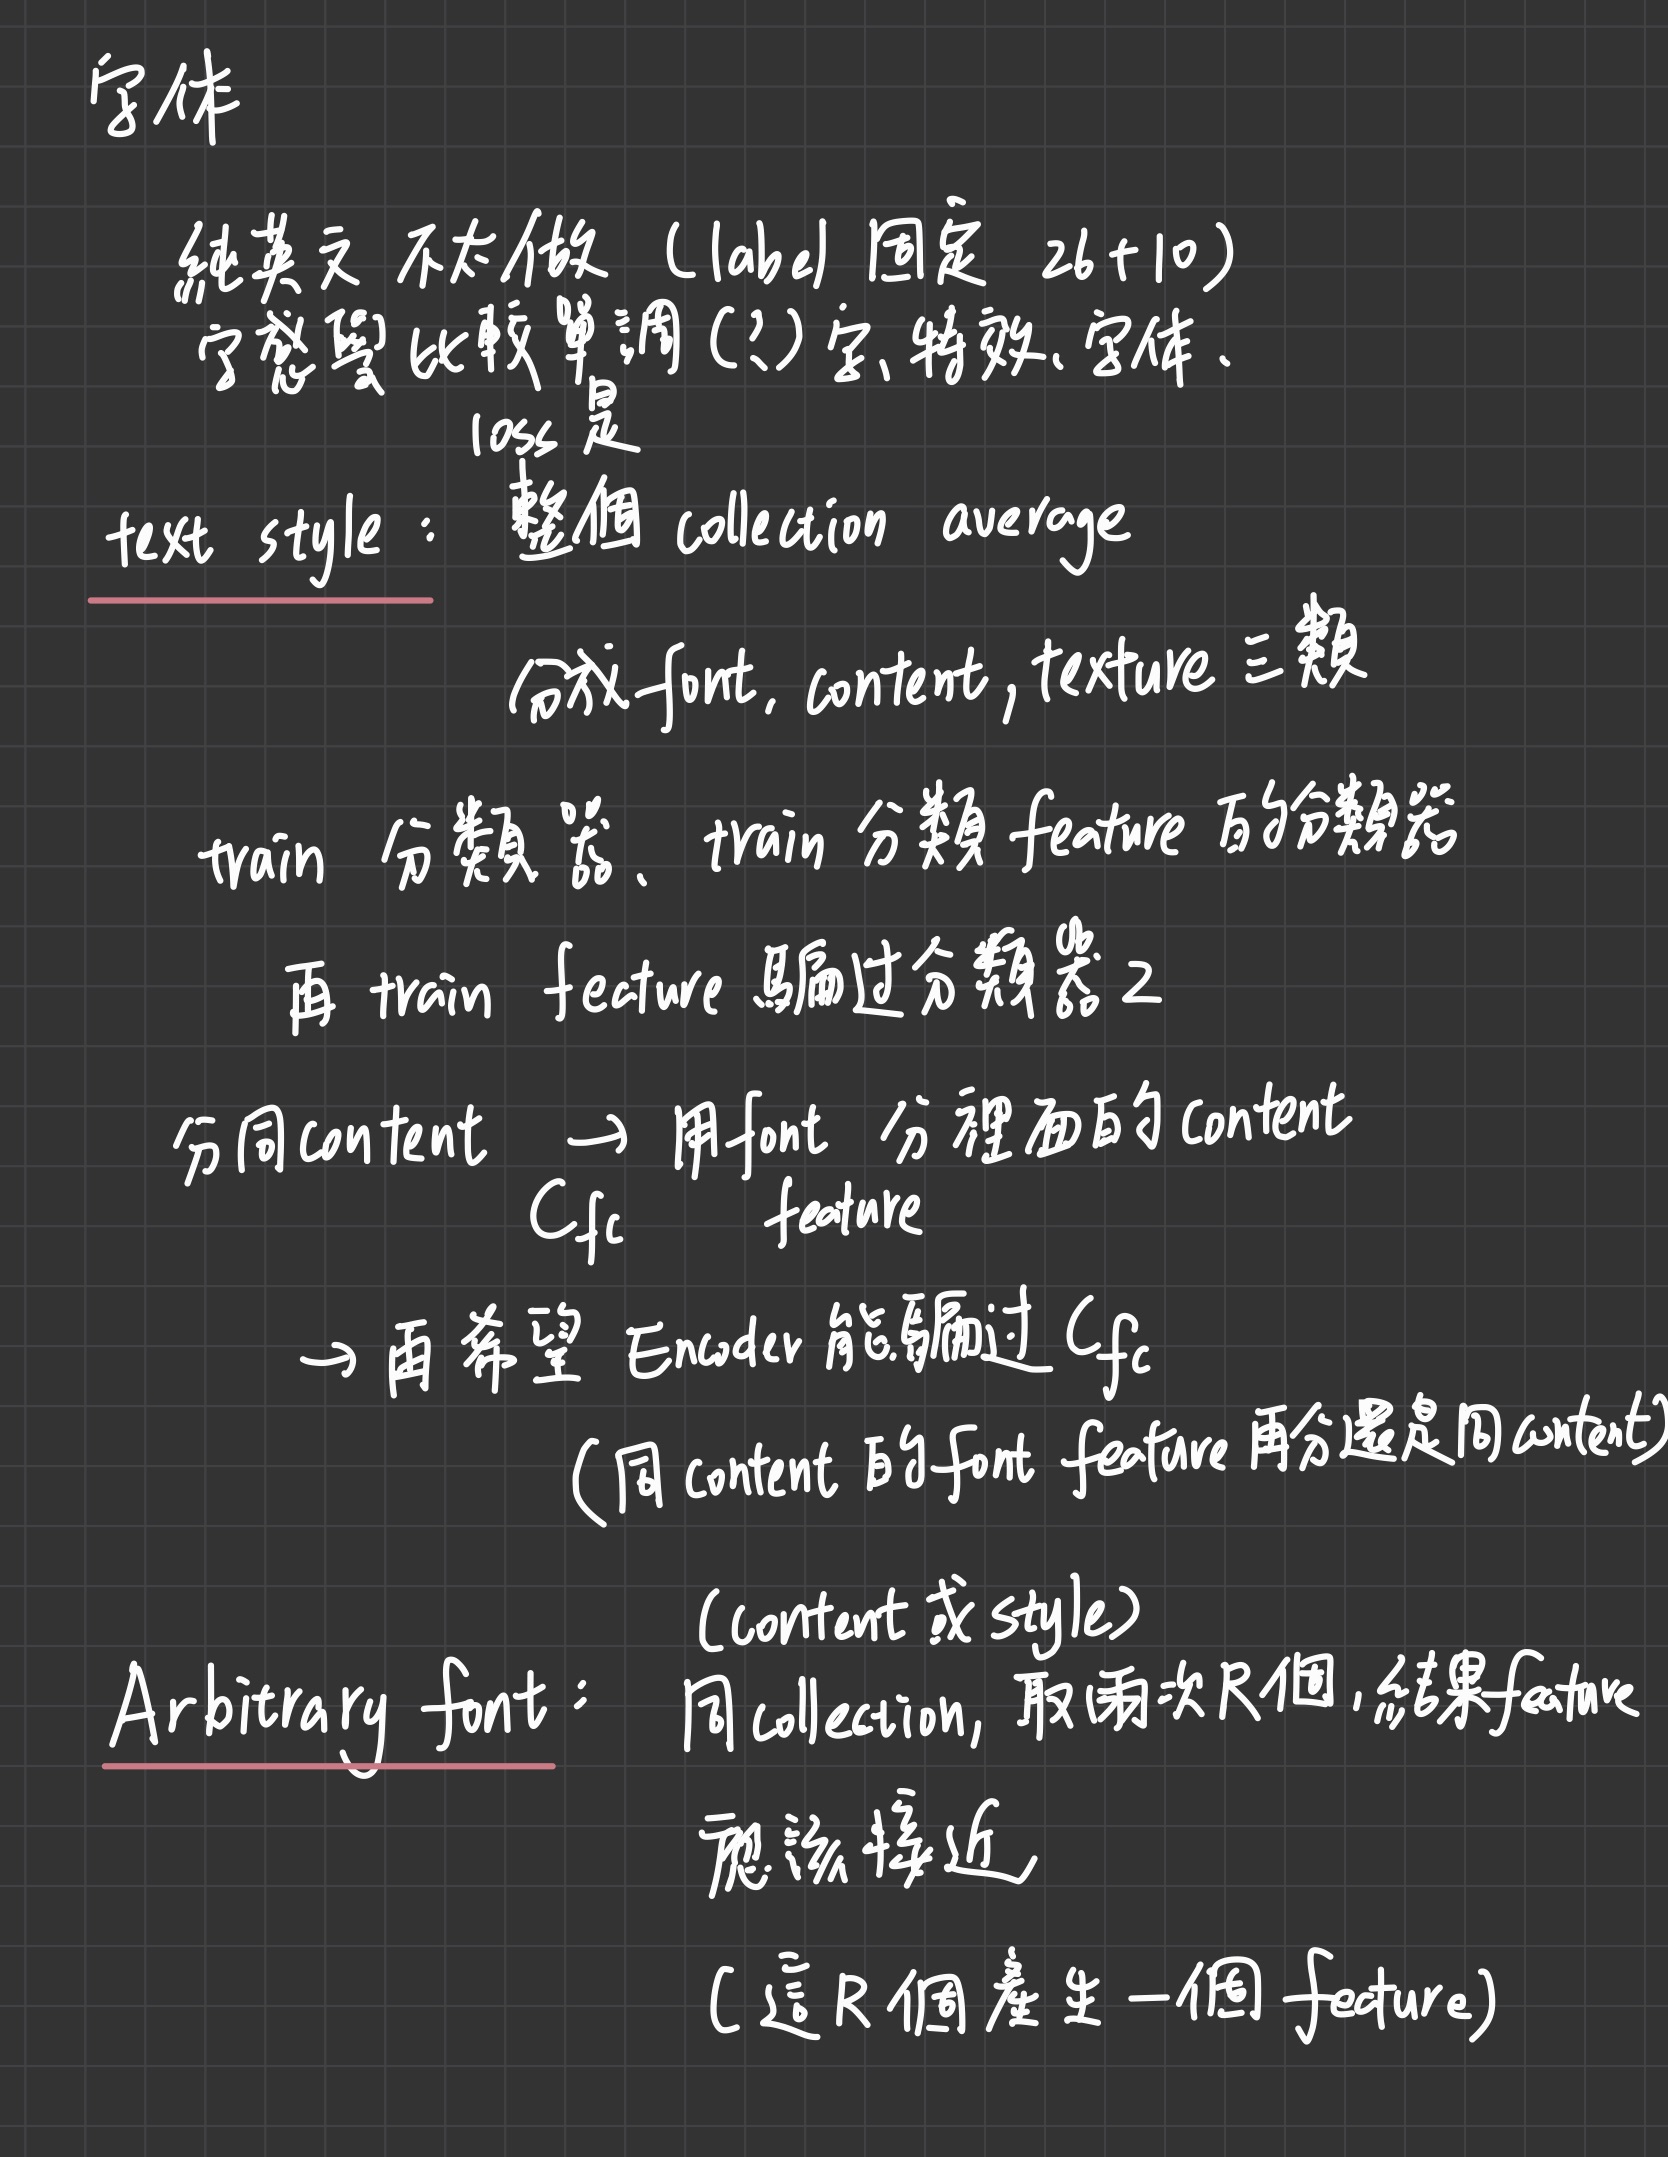 字体
純英文 不太做 (label 固定 26+10)
字感覺比較單調(?)字、特效、字体、
loss 是
text style : 整個 collection average
分成 font, content, texture 三類
train 分類器、train 分類 feature 的分類器
再 train feature 騙过分類器 2
分同content → 用font 分裡面的 content
Cfc feature
→ 再希望 Encoder 能騙过 Cfc
(同 content 的 font feature 再分還是同 content)
(content 或 style)
Arbitrary font : 同 collection, 取兩次 R個, 結果 feature
應該接近
(這 R 個產生一個 feature)